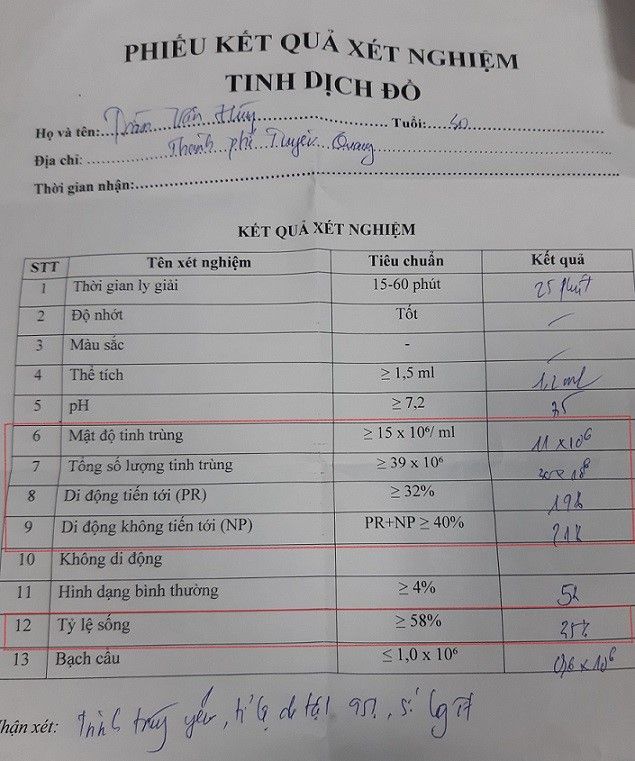 PHIẾU KẾT QUẢ XÉT NGHIỆM
TINH DỊCH ĐỒ
Họ và tên: Trần Văn Hùng Tuổi:
Địa chỉ: Thành phố Tuyên Quang
Thời gian nhận:
KẾT QUẢ XÉT NGHIỆM
STT Tên xét nghiệm Tiêu chuẩn Kết quả
1 Thời gian ly giải 15-60 phút 25 phút
2 Độ nhớt Tốt
3 Màu sắc -
4 Thể tích ≥ 1,5 ml 1,2 ml
5 pH ≥ 7,2
6 Mật độ tinh trùng ≥ 15 x 10⁶/ ml 11 x 10⁶
7 Tổng số lượng tinh trùng ≥ 39 x 10⁶
8 Di động tiến tới (PR) ≥ 32% 19%
9 Di động không tiến tới (NP) PR+NP ≥ 40%
10 Không di động
11 Hình dạng bình thường ≥ 4% 5%
12 Tỷ lệ sống ≥ 58%
13 Bạch cầu ≤ 1,0 x 10⁶ 0,6 x 10⁶
Nhận xét: Tinh trùng yếu, tỉ lệ dị tật 95%, số lg ít